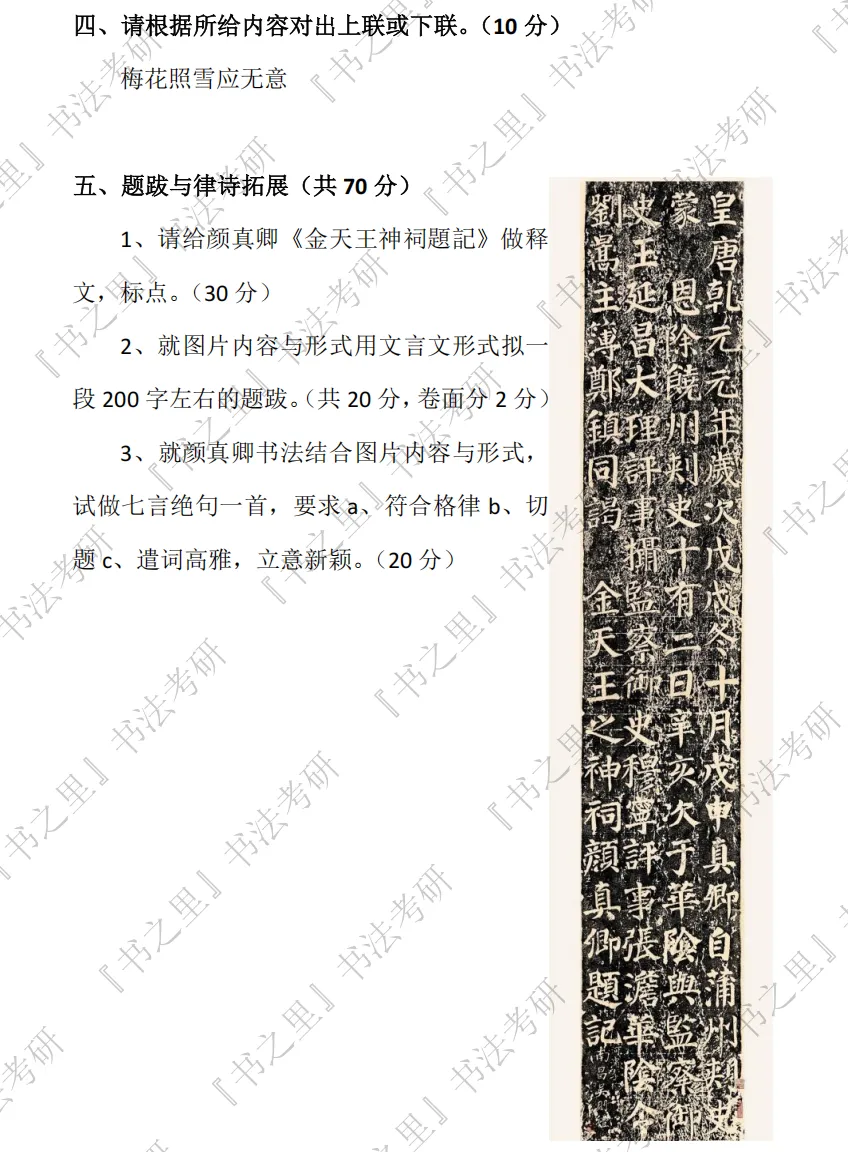 四、请根据所给内容对出上联或下联。（10 分）
梅花照雪应无意
五、题跋与律诗拓展（共 70 分）
1、请给颜真卿《金天王神祠题記》做释
文，标点。（30 分）
2、就图片内容与形式用文言文形式拟一
段 200 字左右的题跋。（共 20 分，卷面分 2 分）
3、就颜真卿书法结合图片内容与形式，
试做七言绝句一首，要求 a、符合格律 b、切
题 c、遣词高雅，立意新颖。（20 分）
皇唐乾元元年歲次戊戌冬十月戊申真卿自蒲州刺史
蒙恩除饒州刺史十有二日辛亥次于華陰與監察御
史王延昌大理評事攝監察御史穆寧評事張澹華陰令
劉暠主薄鄭鎮同謁金天王之神祠顏真卿題記
『书之里』书法考研